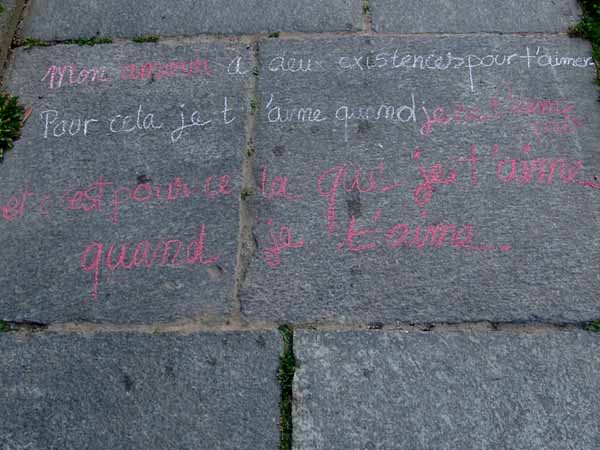 Mon amour a deux existences pour t'aimer.
Pour cela je t'aime quand je ne t'aime
pas
et c'est pour cela que je t'aime
quand je t'aime.